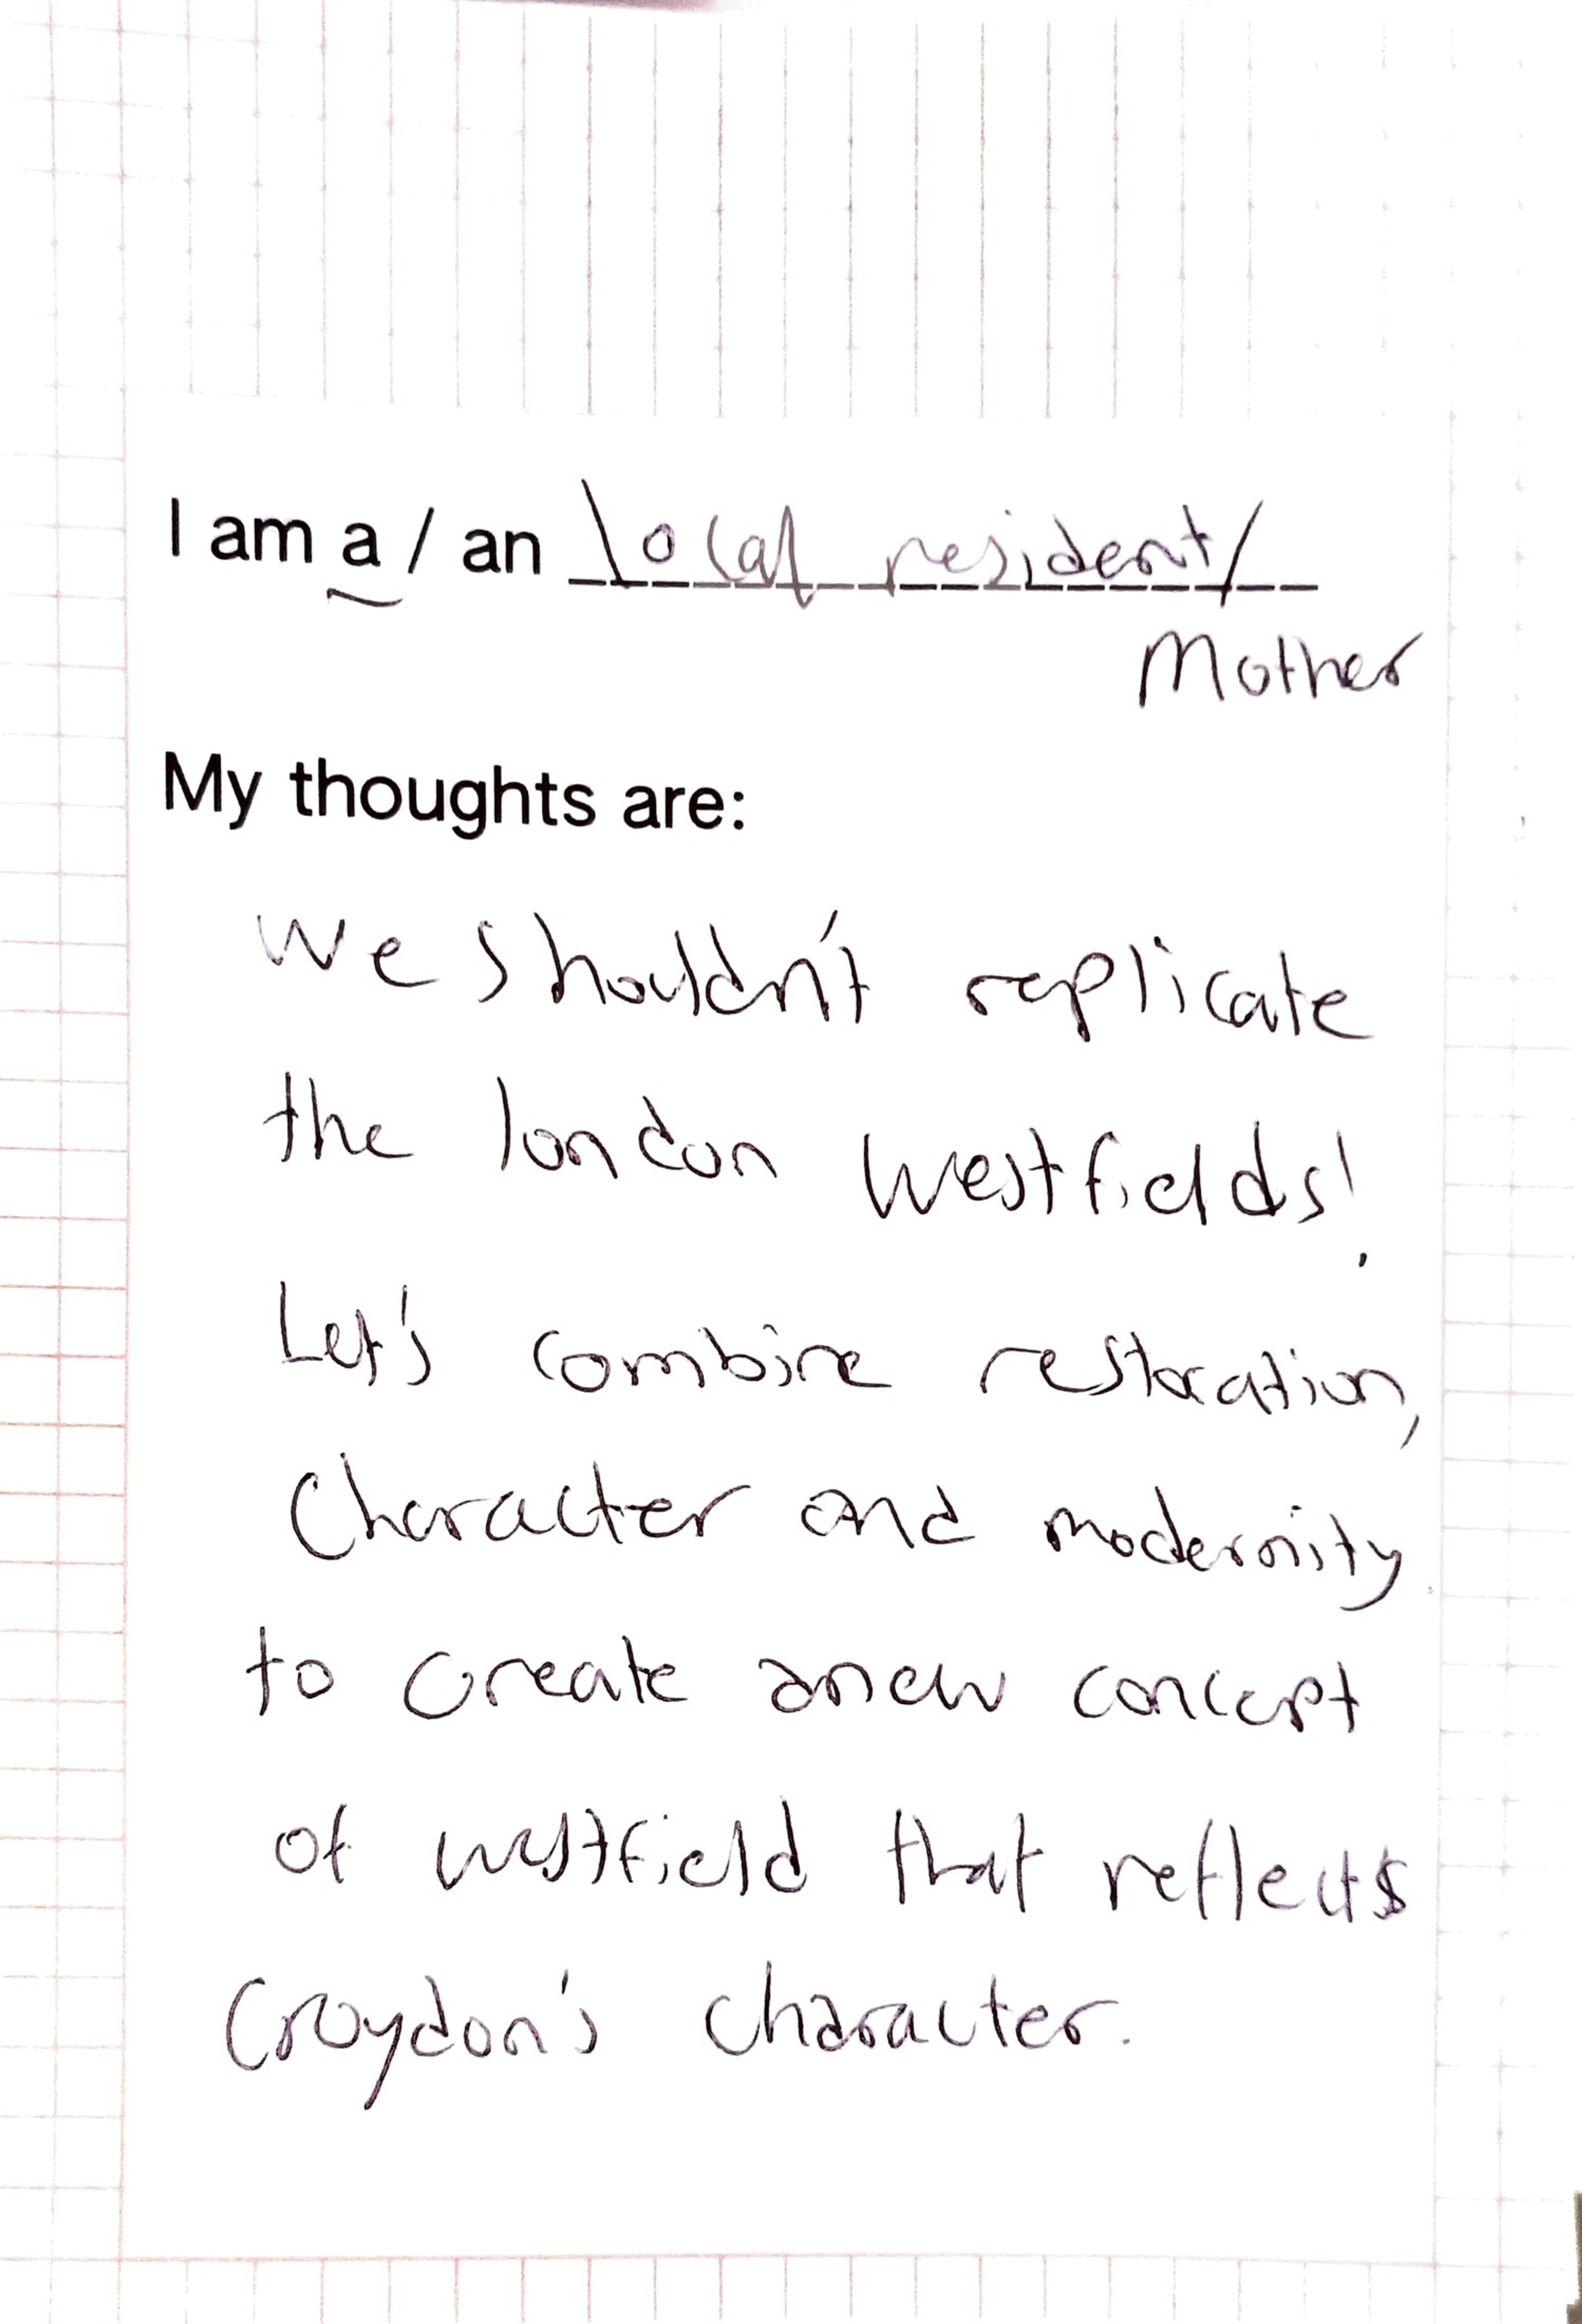 I am a / an local resident/
Mother
My thoughts are:
We shouldn't replicate
the london Westfields!
Let's combine restoration,
Character and modernity
to create anew concept
of westfield that reflects
Croydon's character.